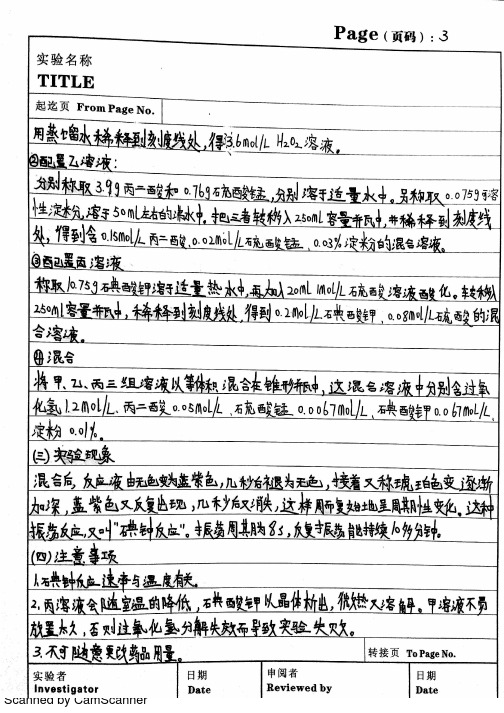 Page (页码) : 3
实验名称
TITLE
起迄页 From Page No.
用蒸馏水稀释到刻度线处，得3.6mol/L H₂O₂溶液。
②配置乙溶液：
分别称取 3.9g 丙二酸和 0.76g 硫酸锰，分别溶于适量水中。另称取 0.075g 可溶
性淀粉，溶于50mL左右的沸水中。把三者转移入250ml容量瓶中，并稀释到刻度线
处，得到含 0.15mol/L 丙二酸、0.02mol/L硫酸锰、0.03%淀粉的混合溶液。
③配置丙溶液
称取10.75g碘酸钾溶于适量热水中，再加入20mL 1mol/L硫酸溶液酸化。转移入
250ml容量瓶中，稀释到刻度线处，得到0.2mol/L碘酸钾、0.08mol/L硫酸的混
合溶液。
④混合
将甲、乙、丙三组溶液以等体积混合在锥形瓶中，这混合溶液中分别含过氧
化氢1.2mol/L、丙二酸0.05mol/L、硫酸锰0.0067mol/L、碘酸钾0.067mol/L、
淀粉 0.01%。
(三)实验现象
混合后，反应液由无色变为蓝紫色，几秒后褪为无色，接着又称琥珀色变逐渐
加深，蓝紫色又反复出现，几秒少后又消失，这样周而复始地呈周期性变化。这种
振荡反应，又叫"碘钟反应"。振荡周期为8s，反复振荡能持续10多分钟。
(四)注意事项
1.碘钟反应速率与温度有关。
2.丙溶液会随室温的降低，碘酸钾以晶体析出，微热又溶解。甲溶液不易
放置太久，否则过氧化氢分解失效而导致实验失败。
3.不可随意更改药品用量。
转接页 To Page No.
实验者
Investigator
日期
Date
申阅者
Reviewed by
日期
Date
Scanned by CamScanner